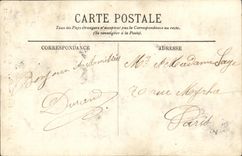 CARTE POSTALE
Tous les Pays étrangers n'acceptent pas la Correspondance au recto.
(Se renseigner à la Poste).
CORRESPONDANCE
ADRESSE
Bonjour
Durand
Mr et Madame
rue
Paris